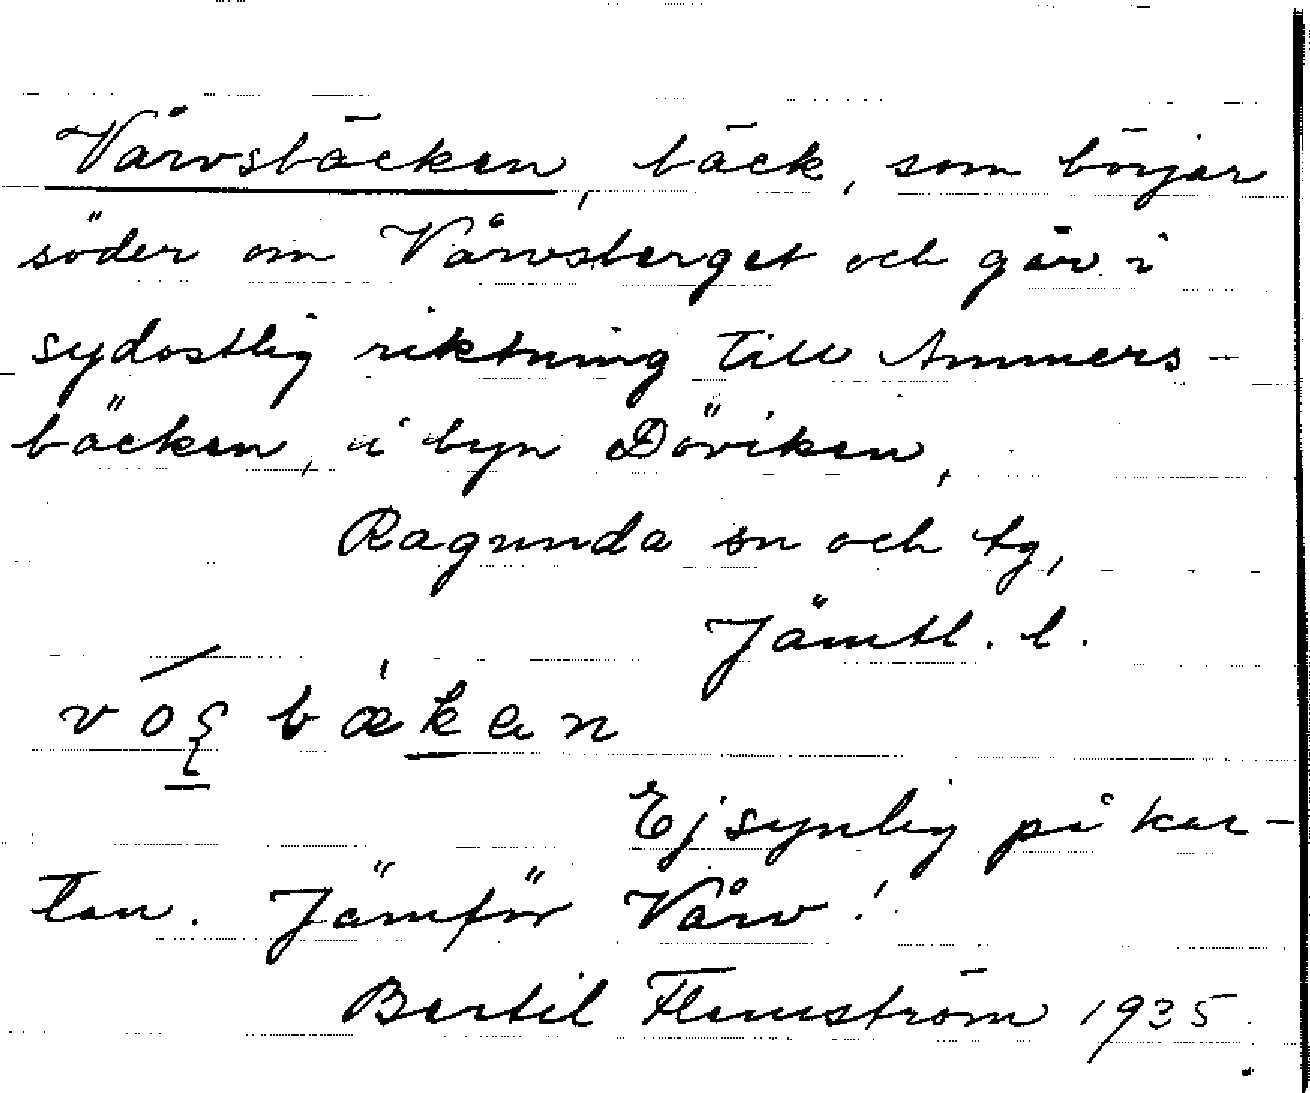 Vårvsbäcken, bäck, som börjar
söder om Vårvsberget och går i
sydostlig riktning till Ammers-
bäcken, i byn Döviken,
Ragunda sn och tg,
Jämtl. l.
bækan
Ej synlig på kar-
tan. Jämför Vårv!
Bertil Flemström 1935.